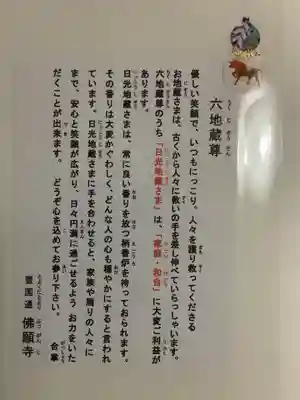 六地蔵尊
優しい笑顔で、いつもにっこり。人々を護り救ってくださる
お地蔵さまは、古くから人々に救いの手を差し伸べていらっしゃいます。
六地蔵尊のうち「日光地蔵さま」は、「家庭・和合」に大変ご利益が
あります。
日光地蔵さまは、常に良い香りを放つ柄香炉を持っておられます。
その香りは大変かぐわしく、どんな人の心も穏やかにすると言われ
ています。日光地蔵さまに手を合わせると、家族や周りの人々に
まで、安心と笑顔が広がり、日々円満に過ごせるよう お力をいた
だくことが出来ます。 どうぞ心を込めてお参り下さい。
合掌
豊国通 佛願寺